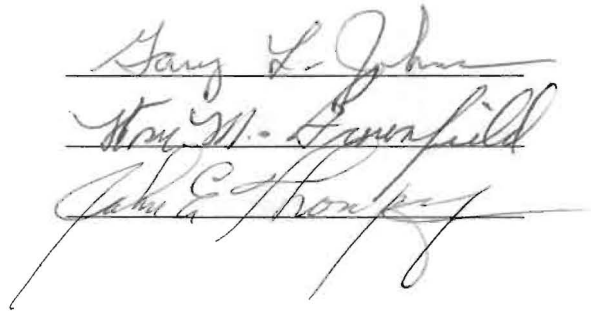 Gary L. Johns
Wm. M. Greenfield
John E Thompson